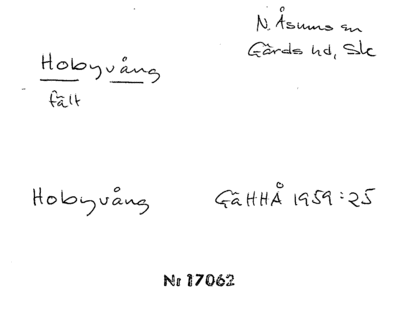 N. Åsums sn
Gärds hd, Sk
Hobyvång
fält
Hobyvång GäHHÅ 1959:25
Nr 17062